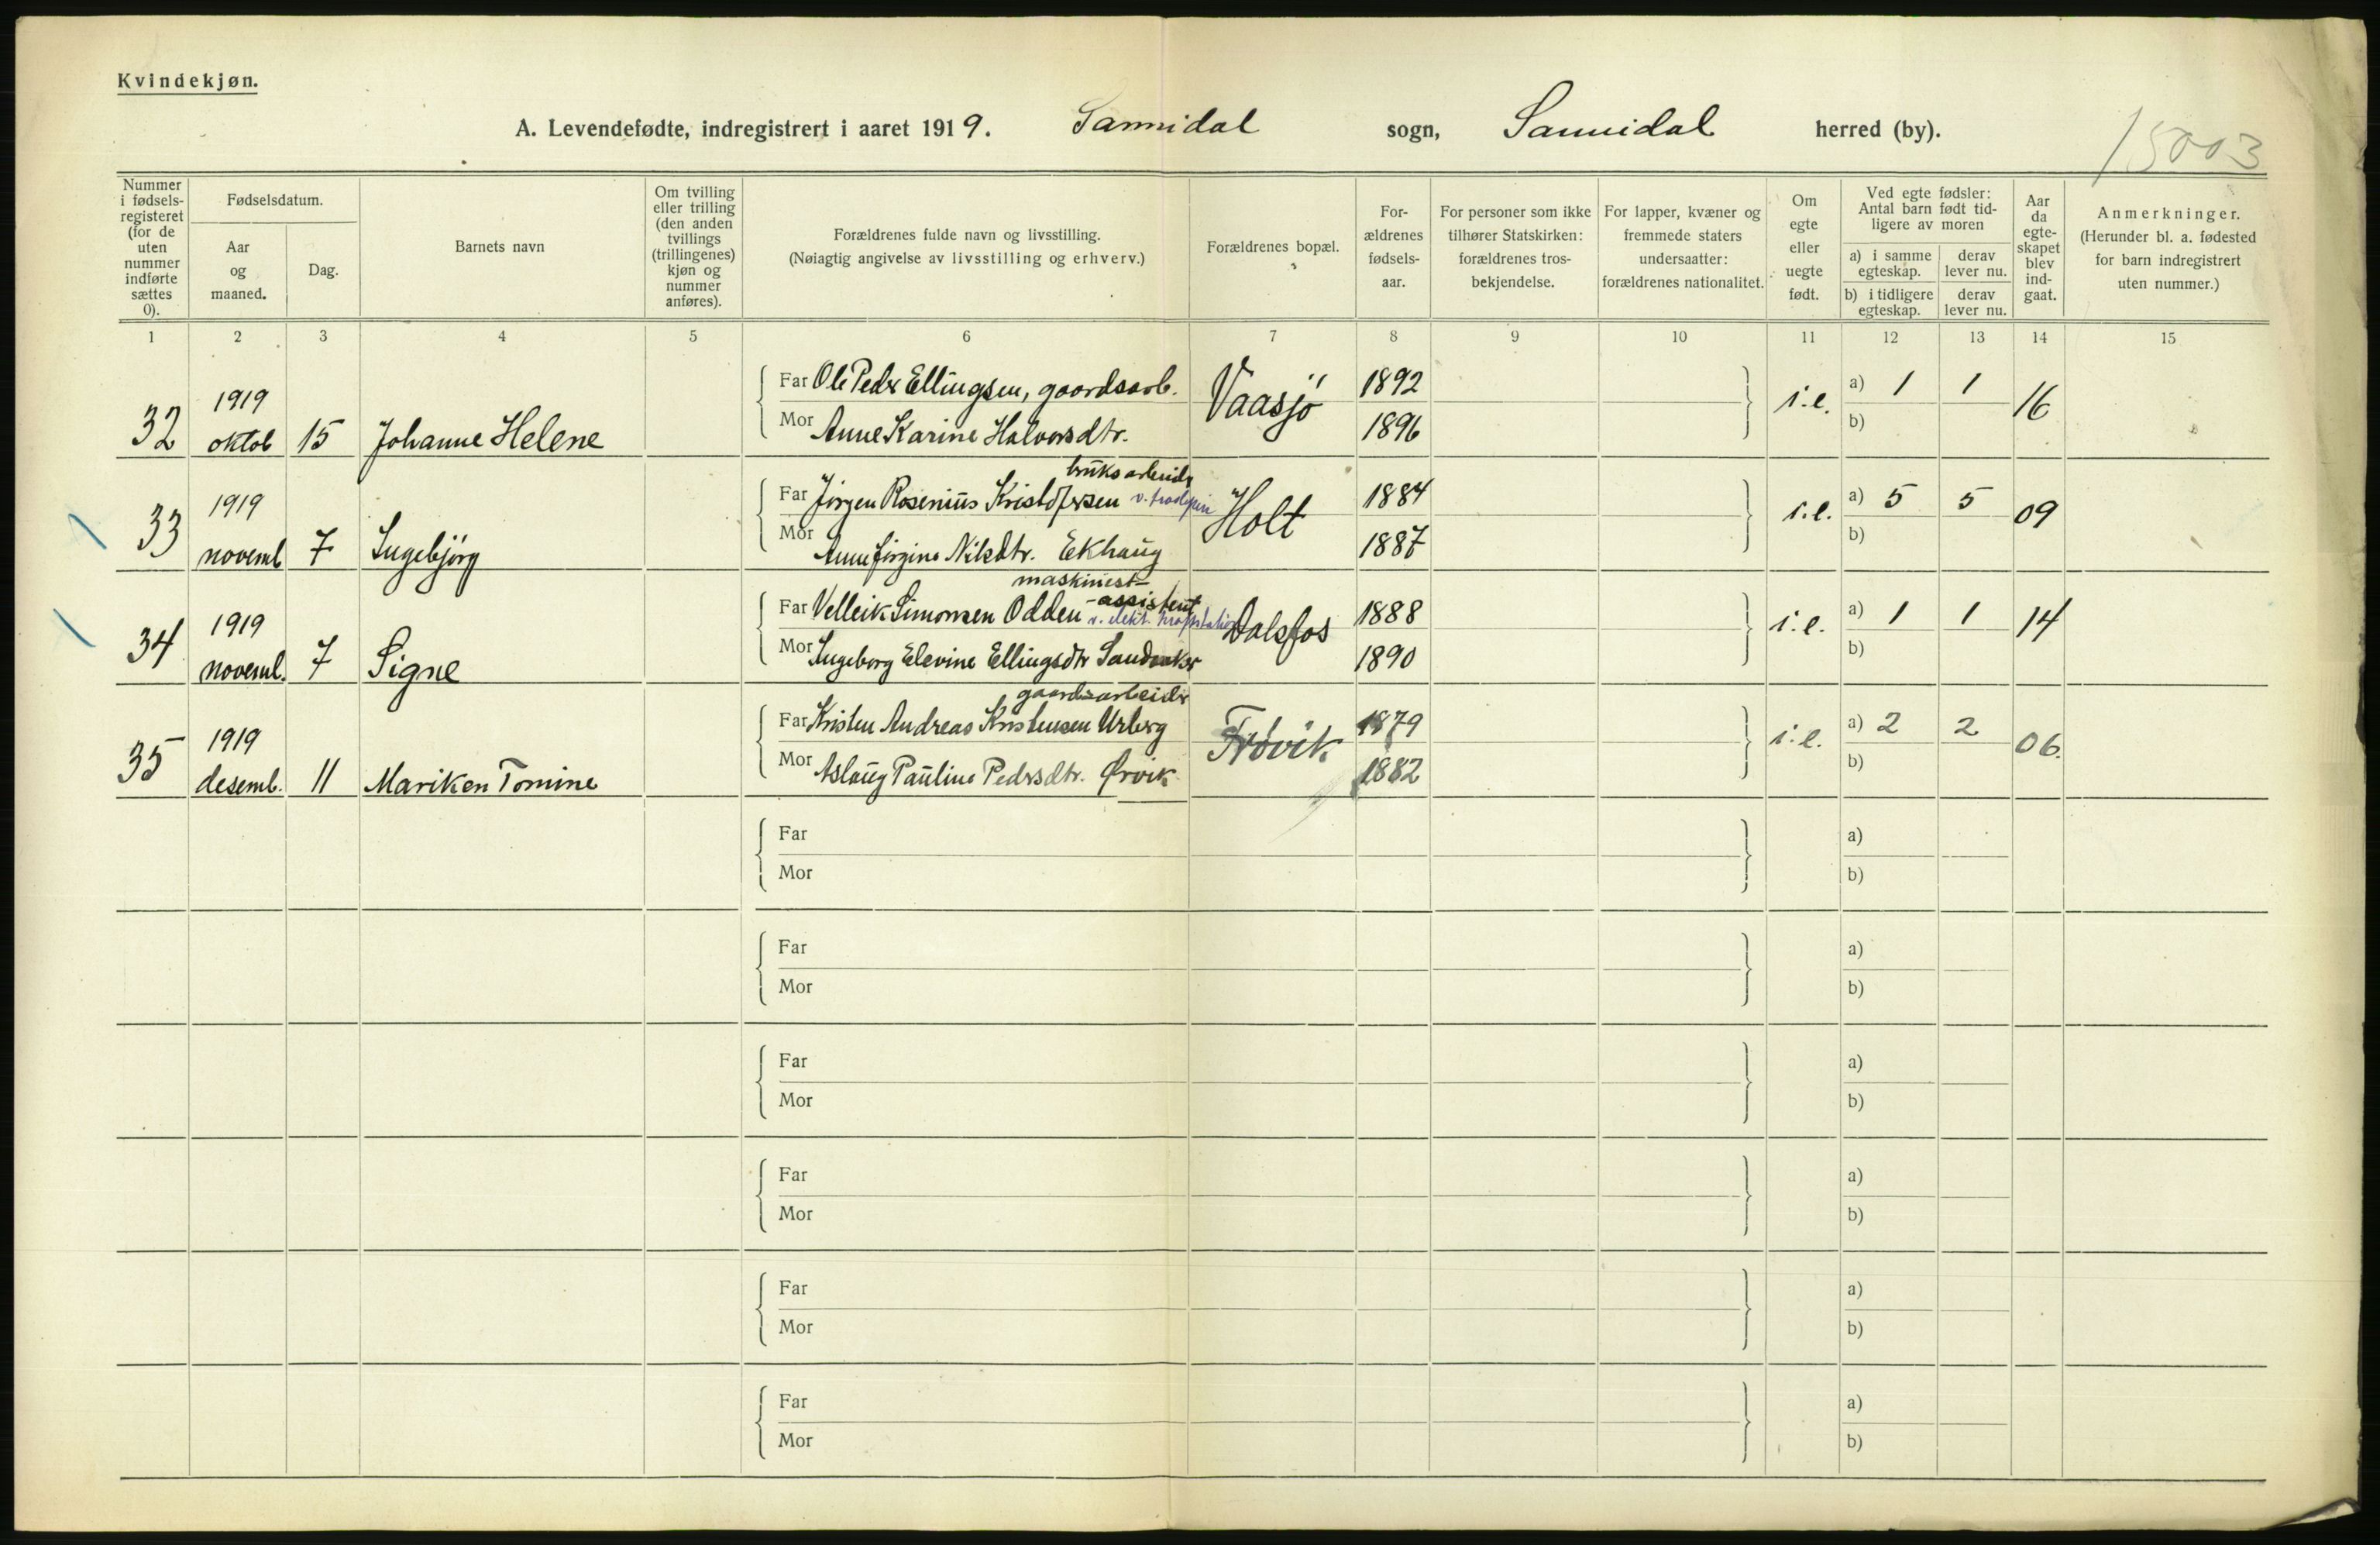 Kvindekjøn.
A. Levendefødte, indregistrert i aaret 1919. Sannidal sogn, Sannidal herred (by).
15003
Nummer i fødsels- registeret (for de uten nummer indførte sættes 0).
Fødselsdatum.
Aar og maaned.
Dag.
Barnets navn
Om tvilling eller trilling (den anden tvillings (trillingenes) kjøn og nummer anføres).
Forældrenes fulde navn og livsstilling.
(Nøiagtig angivelse av livsstilling og erhverv.)
Forældrenes bopæl.
For- ældrenes fødsels- aar.
For personer som ikke tilhører Statskirken: forældrenes tros- bekjendelse.
For lapper, kvæner og fremmede staters undersaatter: forældrenes nationalitet.
Om egte eller uegte født.
Ved egte fødsler: Antal barn født tid- ligere av moren
a) i samme egteskap.
derav lever nu.
b) i tidligere egteskap.
derav lever nu.
Aar da egte- skapet blev ind- gaat.
Anmerkninger.
(Herunder bl. a. fødested for barn indregistrert uten nummer.)
1 2 3 4 5 6 7 8 9 10 11 12 13 14 15
32 1919 oktob 15 Johanne Helene
Far Ole Peder Ellingsen, gaardsarb. Vaasjö 1892 i.e. a) 1 1 16
Mor Anne Karine Halvorsdtr. 1896 b)
bruksarbeider
33 1919 novemb 7 Ingebjörg
Far Jörgen Rosenius Kristofersen v. træsliperi Holt 1884 i.e. a) 5 5 09
Mor Anne Jörgine Nilsdtr. Ekhaug 1887 b)
maskinist-
-assistent
34 1919 novemb. 7 Signe
Far Velleik Simonsen Odden v. elekt. kraftstation Dalsfos 1888 i.e. a) 1 1 14
Mor Ingeborg Elevine Ellingsdtr Sandaker 1890 b)
gaardsarbeider
35 1919 desemb. 11 Mariken Tomine
Far Kristen Andreas Kristensen Urberg Frövik 1879 i.e. a) 2 2 06.
Mor Aslaug Pauline Pedersdtr. Örvik 1882 b)
Far a)
Mor b)
Far a)
Mor b)
Far a)
Mor b)
Far a)
Mor b)
Far a)
Mor b)
Far a)
Mor b)